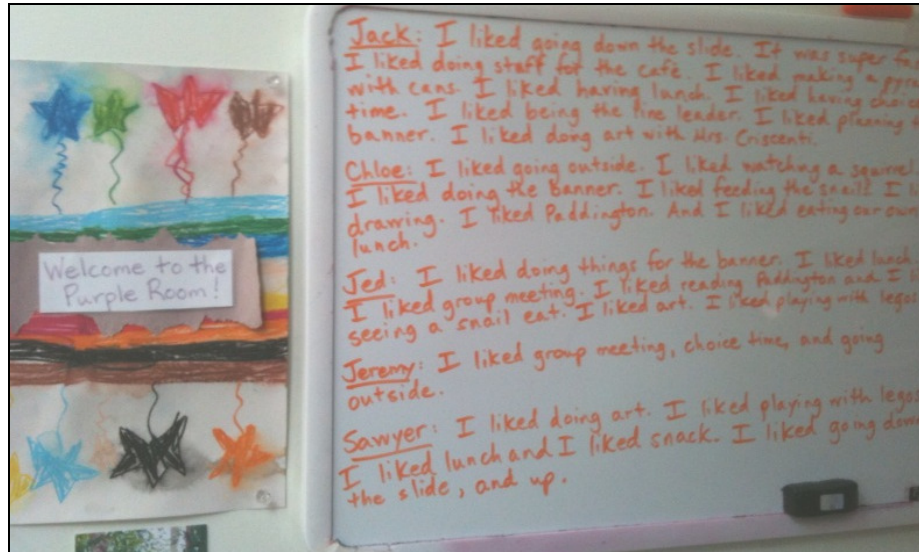 Welcome to the
Purple Room!
Jack: I liked going down the slide. It was super fa
I liked doing staff for the café. I liked making a pyr
with cans. I liked having lunch. I liked having choic
time. I liked being the line leader. I liked planning t
banner. I liked dong art with Mrs. Criscenti.
Chloe: I liked going outside. I liked watching a squirrel
I liked doing the banner. I liked feeding the snails. I l
drawing. I liked Paddington. And I liked eating our own
lunch.
Jed: I liked doing things for the banner. I liked lunch.
I liked group meeting. I liked reading Paddington and I l
seeing a snail eat. I liked art. I liked playing with legos
Jeremy: I liked group meeting, choice time, and going
outside.
Sawyer: I liked doing art. I liked playing with legos
I liked lunch and I liked snack. I liked going down
the slide, and up.